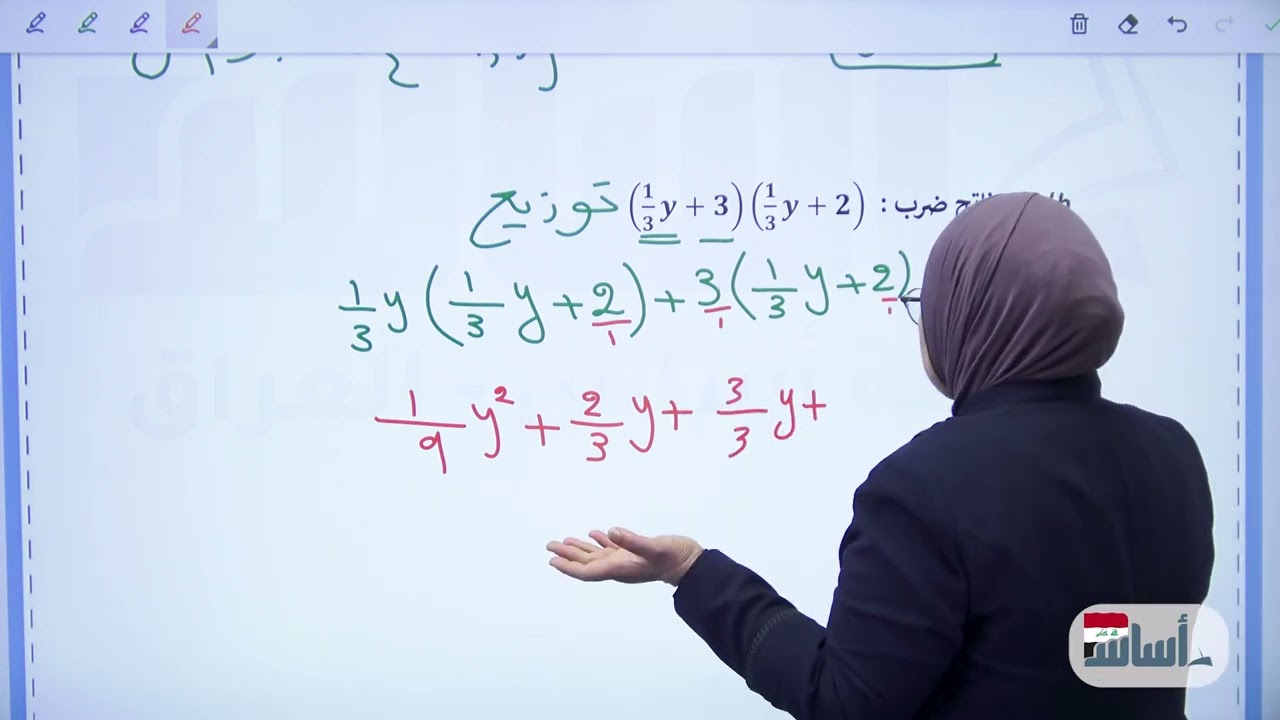 ناتج ضرب : (1/3 y + 3)(1/3 y + 2) توزيع
1/3 y (1/3 y + 2/1) + 3/1 (1/3 y + 2/1)
1/9 y² + 2/3 y + 3/3 y +
أساس